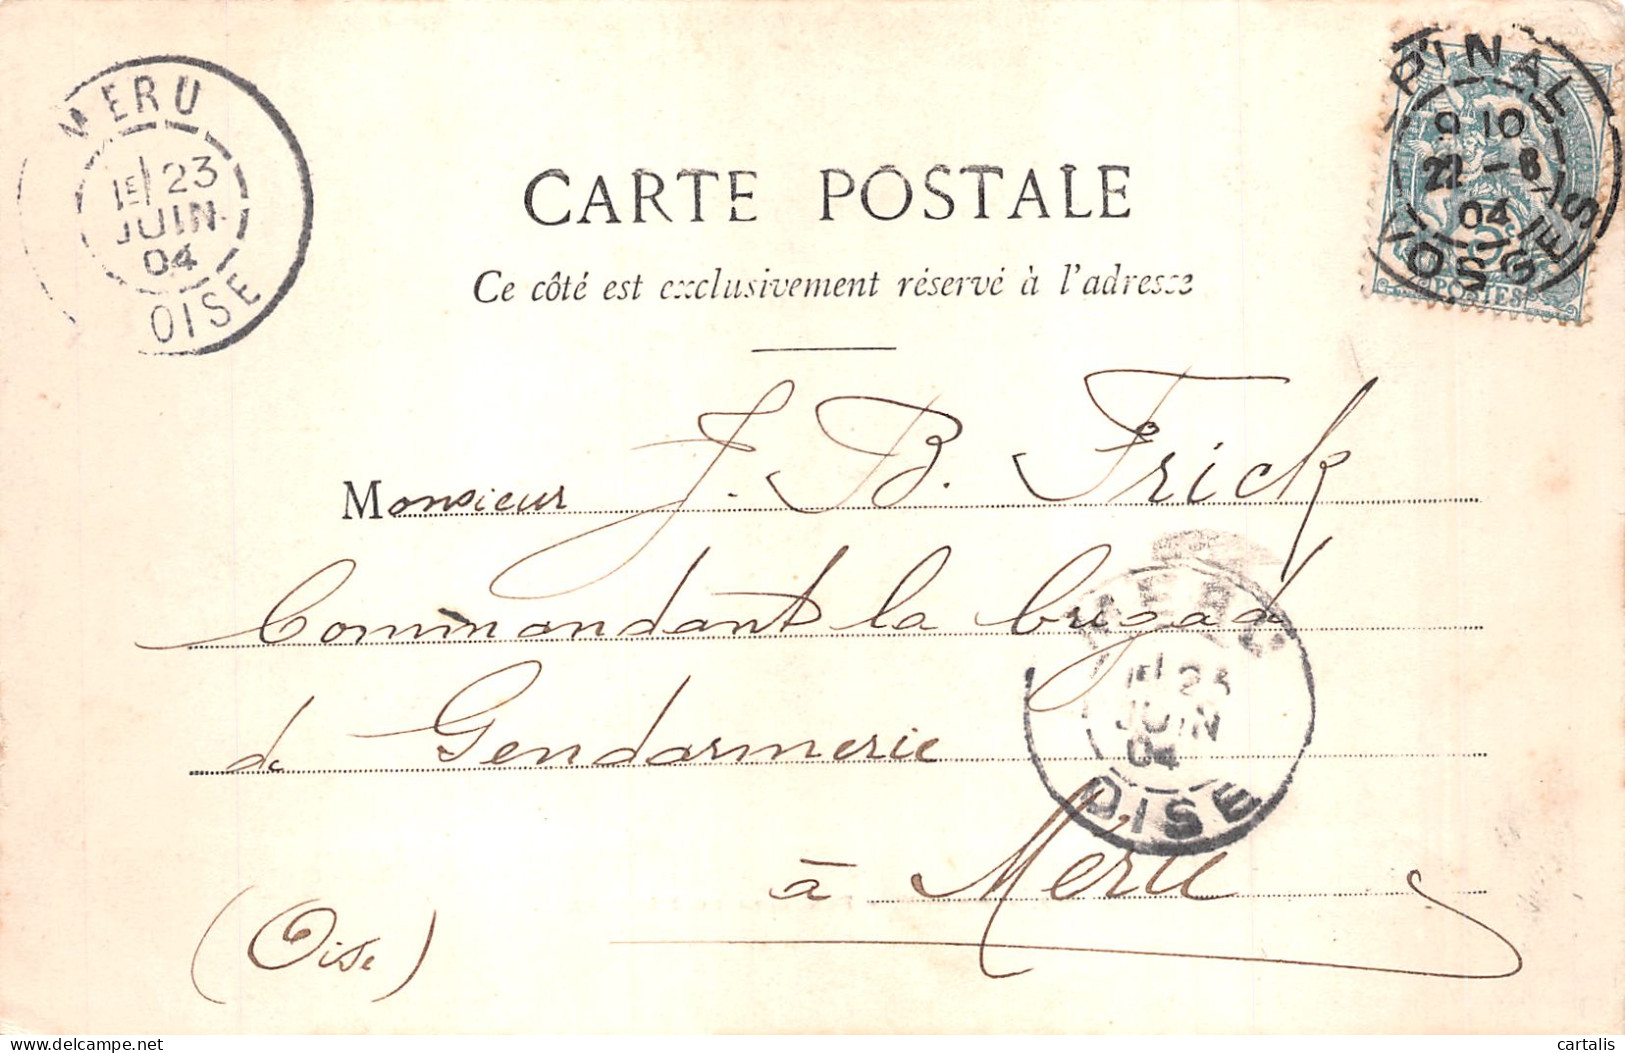 MERU
1E 23
JUIN
04
OISE
PINAL
9 10
22 -6
04
VOSGES
5c
POSTES
CARTE POSTALE
Ce côté est exclusivement réservé à l'adresse
Monsieur J. B. Frick
Commandant la brigade
de Gendarmerie
à Meru
(Oise)
MERU
1E 23
JUIN
04
OISE
delcampe.net
cartalis